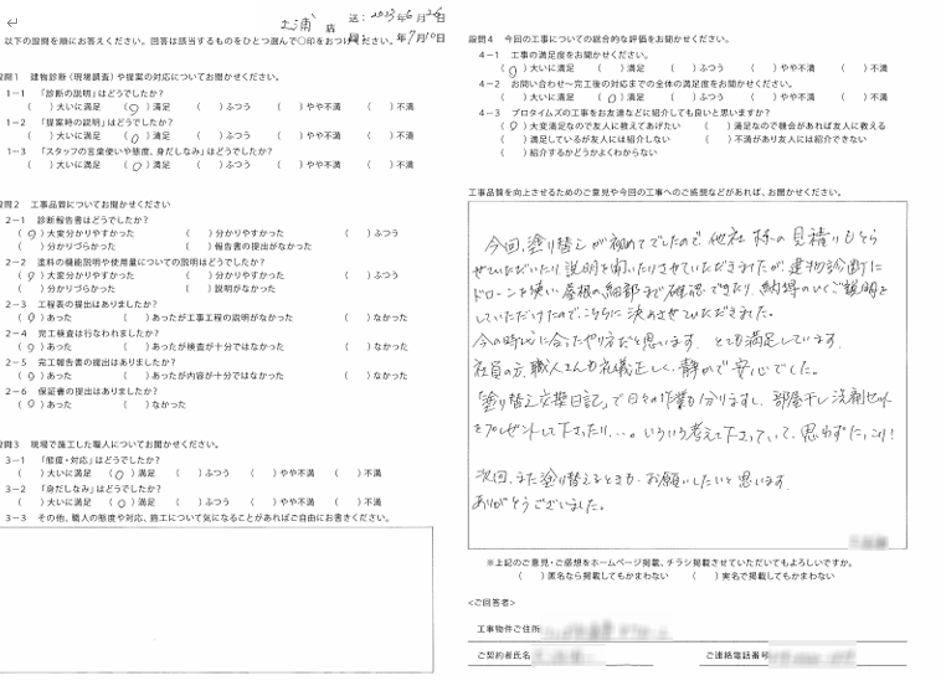 土浦 店
送：2023年6月26日
年7月10日
以下の設問を順にお答えください。回答は該当するものをひとつ選んで○印をおつけください。
設問1 建物診断（現場調査）や提案の対応についてお聞かせください。
1-1 「診断の説明」はどうでしたか？
（ ）大いに満足 （○）満足 （ ）ふつう （ ）やや不満 （ ）不満
1-2 「提案時の説明」はどうでしたか？
（ ）大いに満足 （○）満足 （ ）ふつう （ ）やや不満 （ ）不満
1-3 「スタッフの言葉使いや態度、身だしなみ」はどうでしたか？
（ ）大いに満足 （○）満足 （ ）ふつう （ ）やや不満 （ ）不満
設問2 工事品質についてお聞かせください
2-1 診断報告書はどうでしたか？
（○）大変分かりやすかった （ ）分かりやすかった （ ）ふつう
（ ）分かりづらかった （ ）報告書の提出がなかった
2-2 塗料の機能説明や使用量についての説明はどうでしたか？
（○）大変分かりやすかった （ ）分かりやすかった （ ）ふつう
（ ）分かりづらかった （ ）説明がなかった
2-3 工程表の提出はありましたか？
（○）あった （ ）あったが工事工程の説明がなかった （ ）なかった
2-4 完工検査は行なわれましたか？
（○）あった （ ）あったが検査が十分ではなかった （ ）なかった
2-5 完工報告書の提出はありましたか？
（○）あった （ ）あったが内容が十分ではなかった （ ）なかった
2-6 保証書の提出はありましたか？
（○）あった （ ）なかった
設問3 現場で施工した職人についてお聞かせください。
3-1 「態度・対応」はどうでしたか？
（ ）大いに満足 （○）満足 （ ）ふつう （ ）やや不満 （ ）不満
3-2 「身だしなみ」はどうでしたか？
（ ）大いに満足 （○）満足 （ ）ふつう （ ）やや不満 （ ）不満
3-3 その他、職人の態度や対応、施工について気になることがあればご自由にお書きください。
設問4 今回の工事についての総合的な評価をお聞かせください。
4-1 工事の満足度をお聞かせください。
（○）大いに満足 （ ）満足 （ ）ふつう （ ）やや不満 （ ）不満
4-2 お問い合わせ～完工後の対応までの全体の満足度をお聞かせください。
（ ）大いに満足 （○）満足 （ ）ふつう （ ）やや不満 （ ）不満
4-3 プロタイムズの工事をお友達などに紹介しても良いと思いますか？
（○）大変満足なので友人に教えてあげたい （ ）満足なので機会があれば友人に教える
（ ）満足しているが友人には紹介しない （ ）不満があり友人には紹介できない
（ ）紹介するかどうかよくわからない
工事品質を向上させるためのご意見や今回の工事へのご感想などがあれば、お聞かせください。
今回、塗り替えが初めてでしたので、他社様の見積りもとら
せていただいたり、説明を聞いたりさせていただきましたが、建物診断に
ドローンを使い、屋根の細部まで確認できたり、納得のいくご説明を
していただけたので、こちらに決めさせていただきました。
今の時代に合ったやり方だと思います。とても満足しています。
社員の方、職人さんも礼儀正しく、静かで安心でした。
「塗り替え交換日記」で日々の作業も分りますし、部屋干し洗剤セット
をプレゼントして下さったり...。いろいろ考えて下さっていて、思わずにっこり！
次回、また塗り替えるときも、お願いしたいと思います。
ありがとうございました。
※上記のご意見・ご感想をホームページ掲載、チラシ掲載させていただいてもよろしいですか。
（ ）匿名なら掲載してもかまわない （ ）実名で掲載してもかまわない
<ご回答者>
工事物件ご住所
ご契約者氏名 ご連絡電話番号